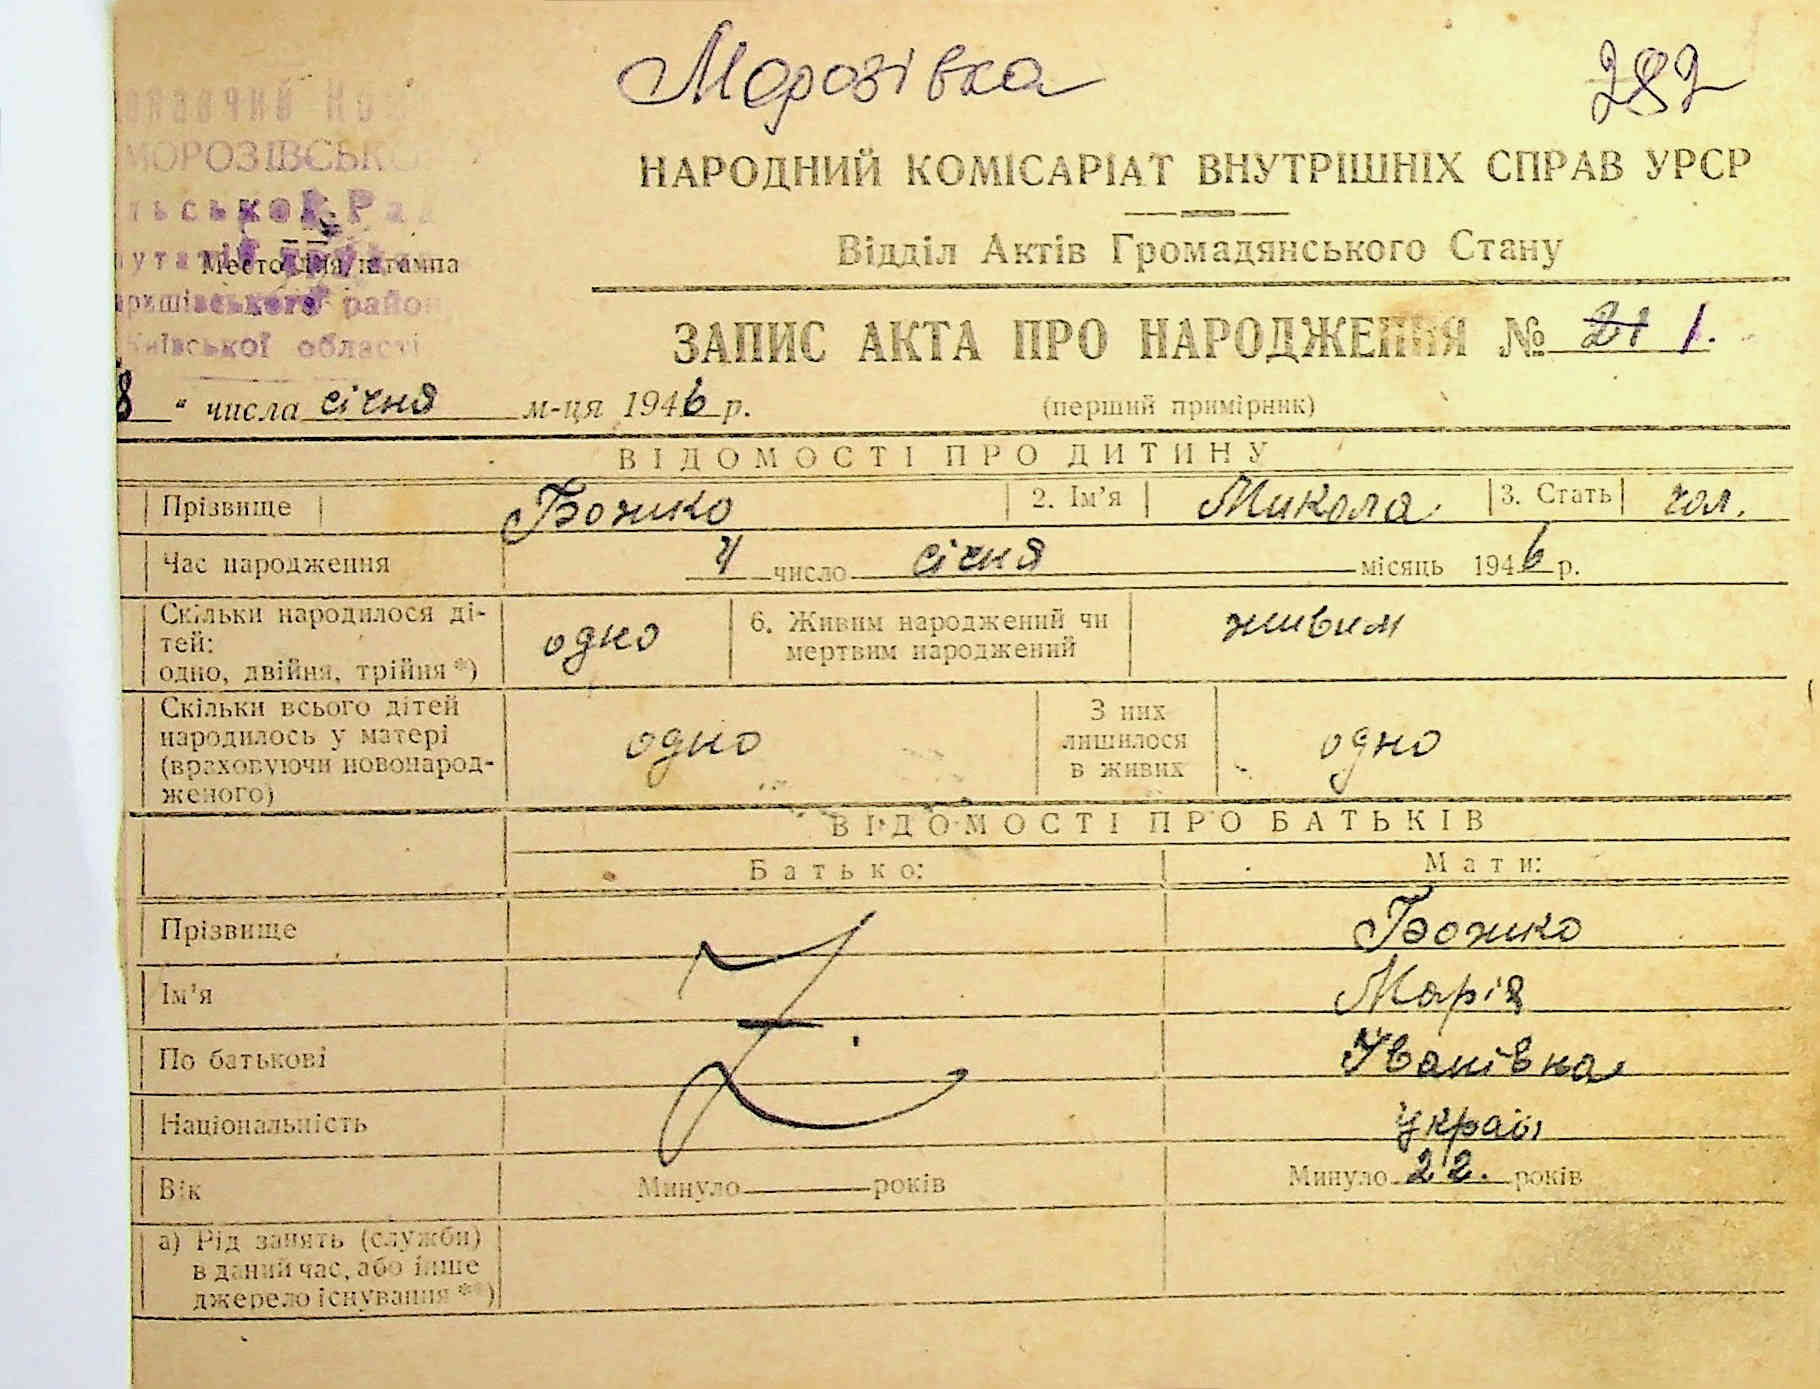 Морозівка
282
МОРОЗІВСЬКО
НАРОДНИЙ КОМІСАРІАТ ВНУТРІШНІХ СПРАВ УРСР
Відділ Актів Громадянського Стану
Место для штампа
району
Київської області
ЗАПИС АКТА ПРО НАРОДЖЕННЯ № 21 1.
8 " числа січня м-ця 1946 р. (перший примірник)
ВІДОМОСТІ ПРО ДИТИНУ
Прізвище Божко 2. Ім'я Микола 3. Стать чол.
Час народження 4 число січня місяць 1946 р.
Скільки народилося ді-
тей:
одно, двійня, трійня *) одно 6. Живим народжений чи
мертвим народжений живим
Скільки всього дітей
народилось у матері
(враховуючи новонарод-
женого) одно З них
лишилося
в живих одно
ВІДОМОСТІ ПРО БАТЬКІВ
Батько: Мати:
Прізвище Божко
Ім'я Марія
По батькові Іванівна
Національність україн
Вік Минуло років Минуло 22. років
а) Рід занять (служби)
в даний час, або інше
джерело існування **)